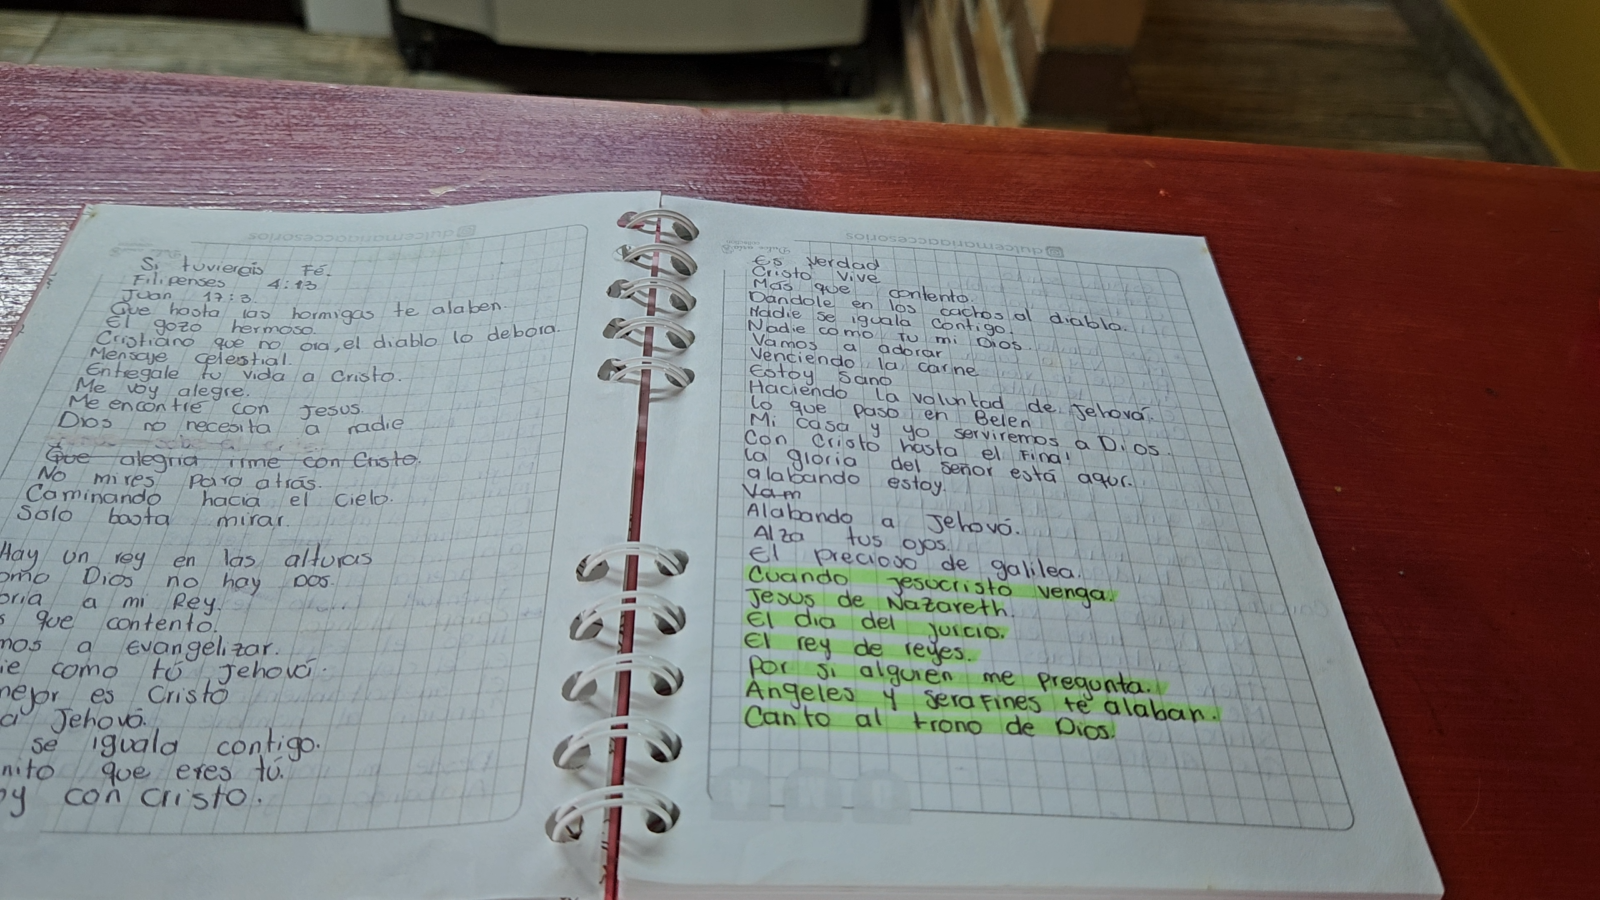 Si tuvierais Fé.
Filipenses 4:13
Juan 17:3.
Que hasta las hormigas te alaben.
El gozo hermoso.
Cristiano que no ora, el diablo lo debora.
Mensaje celestial.
Entregale tu vida a Cristo.
Me voy alegre.
Me encontre con Jesus.
Dios no necesita a nadie
Que alegria irme con Cristo.
No mires para atrás.
Caminando hacia el cielo.
Solo basta mirar.
Hay un rey en las alturas
omo Dios no hay Dos.
oria a mi Rey.
s que contento.
mos a Evangelizar.
ie como tú Jehová.
mejor es Cristo
a Jehová.
se iguala contigo.
nito que eres tú.
oy con Cristo.
dulcemariaaccesorios
Es verdad
Cristo vive
Mas que contento.
Dandole en los cachos al diablo.
Nadie se iguala contigo.
Nadie como Tu mi Dios.
Vamos a adorar
Venciendo la carne
Estoy Sano
Haciendo la voluntad de Jehová.
Lo que paso en Belen
Mi casa y yo serviremos a Dios.
Con Cristo hasta el Final
La gloria del señor está aquí.
alabando estoy.
Vam
Alabando a Jehová.
Alza tus ojos.
El precioso de galilea.
Cuando Jesucristo venga.
Jesus de Nazareth.
El dia del juicio.
El rey de reyes.
Por si alguien me pregunta.
Angeles y serafines te alaban.
Canto al trono de Dios.